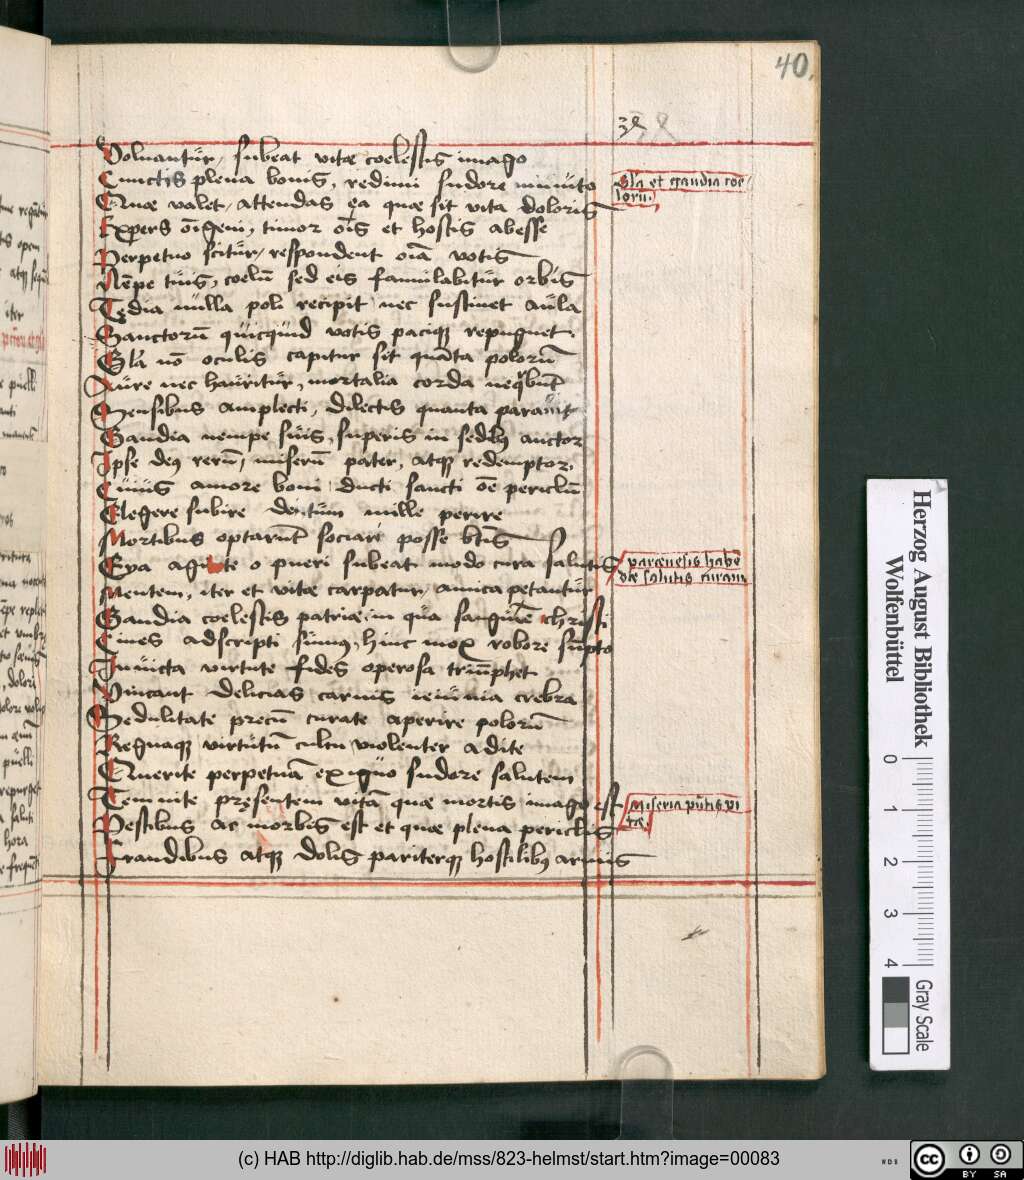 40.
38
Voluantur, subeat vitæ coelestis imago
Cunctis plena bonis, redimi sudore minuto
Quæ valet, attendas ea quæ sit vita doloris
Expers oīgeni, timor oīs et hostis abesse
Perpetuo scitur, respondent oīa votis
Nēpe tuus, coelū sed eis famulabitur orbis
Tędia nulla poli recipit nec sustinet aula
Sanctorū quicquid votis pacique repugnet.
Glīa nō oculis capitur sit quāta polorū
Aure nec hauritur, mortalia corda nequibūt
Mensibus amplecti, dilectis quanta parauit
Gaudia nempe suis, superis in sedibus auctor
Ipse deus rerū, miserū pater, atque redemptor.
Cuius amore boni ducti sancti oē periclū
Elegere subire decūum mille perire
Mortibus optarūt sociari posse btīs
Eya agite o pueri subeat modo cura salutis
Mentem, iter et vitæ carpatur, amica petantur
Gaudia coelestis patriæ, in qua sanguīe christi
Ciues adscripti sumus, hinc mox robore sūpto
Inuicta virtute fides operosa triūphet
Vincant delicias carnis ieiunia crebra
Sedulitate precū curate aperire polorū
Regnaque virtutum cultu violenter adite
Querite perpetuā exiguo sudore salutem
Temnite pręsentem vitā quæ mortis imago est
Pestibus ac morbis est et quæ plena periclis
Fraudibus atque dolis pariterque hostilibus armis
Glīa et gaudia coe
lorū.
parænesis habē
dæ salutis curam
Miseria pūtis vi
tæ.
Herzog August Bibliothek
Wolfenbüttel
0 1 2 3 4
Gray Scale
(c) HAB http://diglib.hab.de/mss/823-helmst/start.htm?image=00083
WDB
cc
BY SA